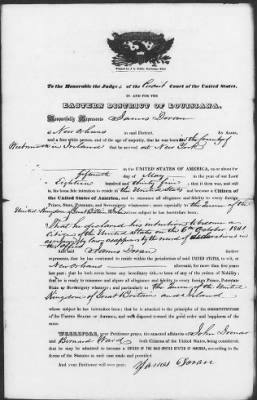 To the Honorable the Judge of the Circuit Court of the United States,
IN AND FOR THE
EASTERN DISTRICT OF LOUISIANA.
Respectfully Represents James Doran
of New Orleans in said District, An Alien,
and a free white person, and of the age of majority, that he was born in the County of
Westmeath in Ireland that he arrived at New York
IN THE UNITED STATES OF AMERICA, on or about the
fifteenth day of May in the year of our Lord
Eighteen hundred thirty five that it then was, and still
is, his bona fide intention to reside in the United States and become a Citizen of
the United States of America, and to renounce all allegiance and fidelity to every Foreign
Prince, State, Potentate, and Sovereignty whatever; and more especially to the Queen of the
United Kingdom of Great Britain & Ireland whose subject he has heretofore been.
That he declared his intention to become a
citizen of the United States on the 6th October 1841
James Doran further
represents, that he has continued to reside within the jurisdiction of said UNITED STATES, to wit, at
New Orleans for more than five years
last past; that he doth never know any hereditary title, or of being any of the privies of Nobility;
that he is ready to renounce and abjure all allegiance and fidelity to every foreign Prince, Potentate
State or Sovereignty whatever; and particularly to the Queen of the United
Kingdom of Great Britain and Ireland
whose subject he has heretofore been; and that he is attached to the principles of the CONSTITUTION
of the United States of America, and well disposed toward the good order and happiness of the same.
WHEREFORE, your Petitioner prays, the annexed affidavits of John Doran
and Bernard Ward both Citizens of the United States, being considered,
that he may be admitted to become a CITIZEN OF THE SAID UNITED STATES OF AMERICA, according to the
forms of the Statutes in such case made and provided.
And your Petitioner will ever pray. James Doran